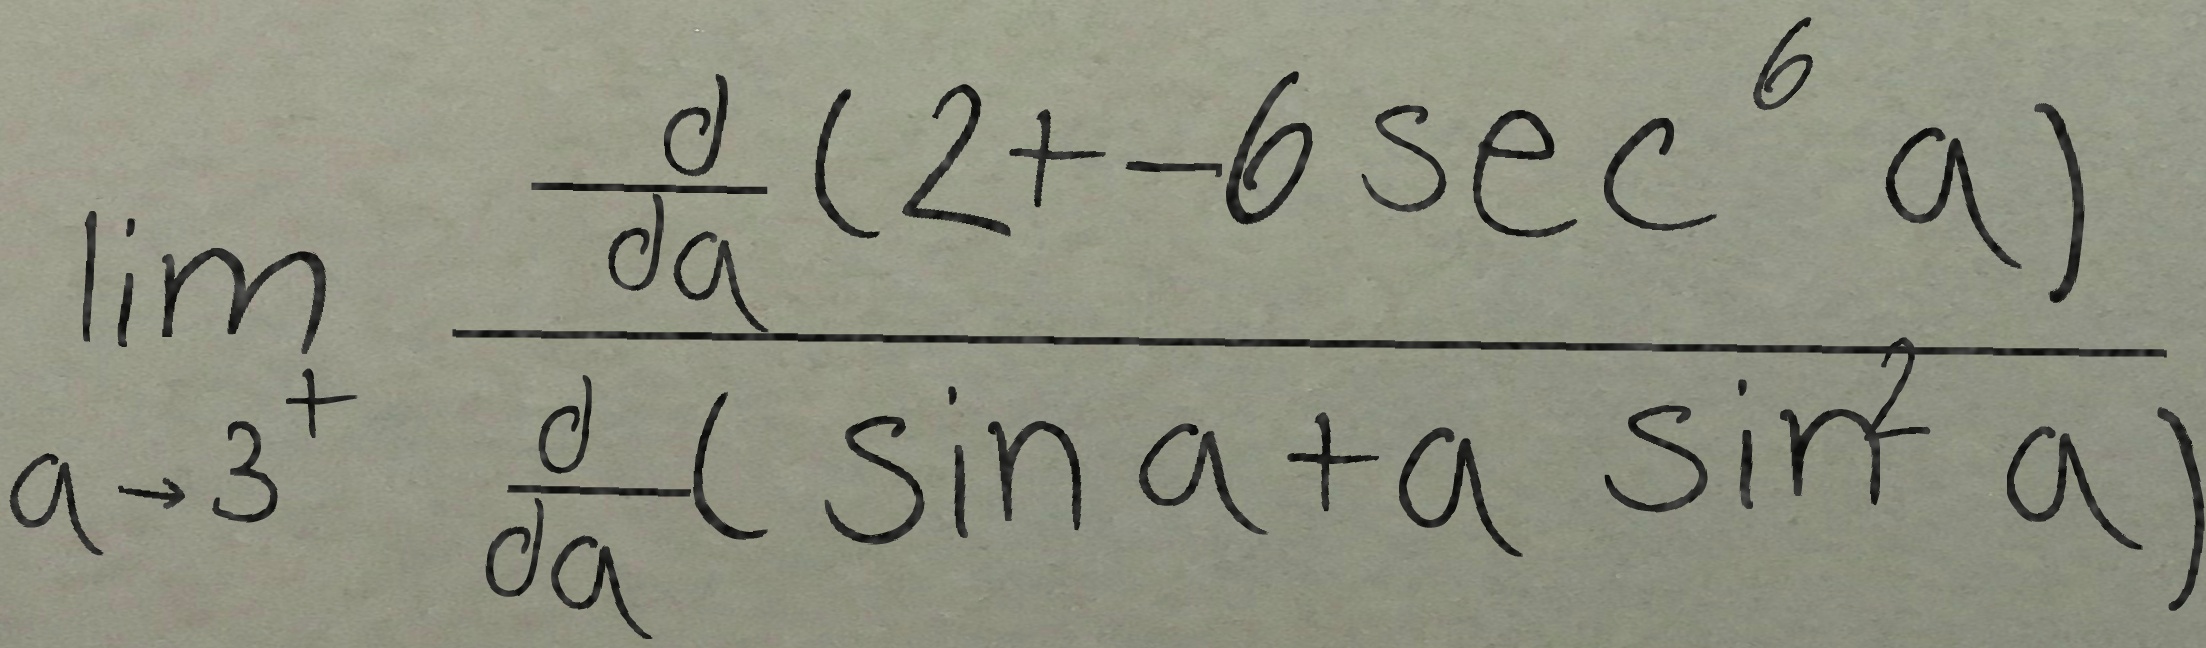 \lim_{a \to 3^{+}} \frac{\frac{d}{da}(2+-6\sec^{6} a)}{\frac{d}{da}(\sin a+a \sin^{2} a)}